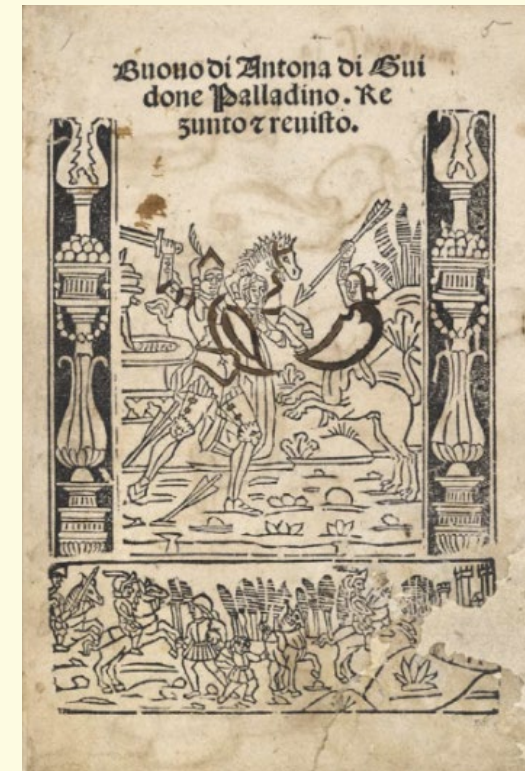 Buouo di Antona di Gui
done Palladino. Re
zunto ⁊ reuisto.
5